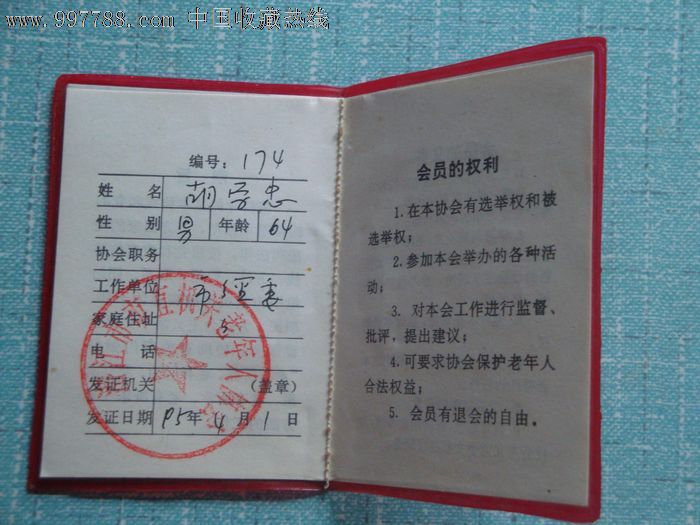 www.997788.com 中国收藏热线
编号：174
姓 名 胡学忠
性 别 男 年龄 64
协会职务
工作单位 市经委
家庭住址
电 话
发证机关 (盖章)
发证日期 95年4月1日
会员的权利
1.在本协会有选举权和被
选举权；
2.参加本会举办的各种活
动；
3. 对本会工作进行监督、
批评，提出建议；
4.可要求协会保护老年人
合法权益；
5. 会员有退会的自由。